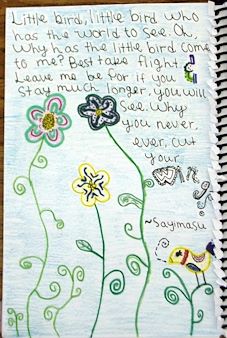 Little bird, little bird who
has the world to see. Oh,
Why has the little bird come
to me? Best take flight.
Leave me be for if you
stay much longer, you will
see. Why
you never,
ever, cut
your
~Sayimasu